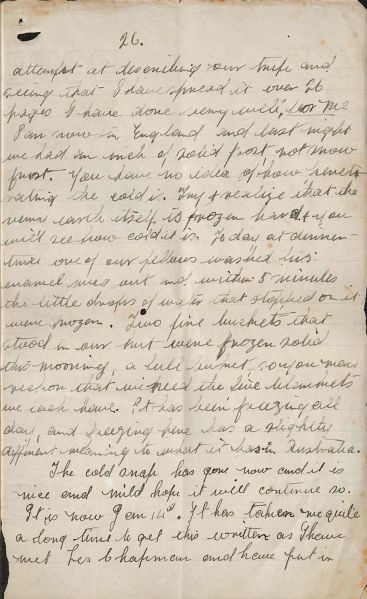 26.
attempt at describing our trip and
seeing that I have spread it over 26
pages I have done very well, for me
I am now in England and last night
we had an inch of solid frost, not snow
frost. You have no idea of how penet-
rating the cold is. Try & realize that the
very earth itself is frozen hard & you
will see how cold it is. Today at dinner-
time one of our fellows washed his
enamel mug out and within 5 minutes
the little drops of water that stopped on it
were frozen. Two fire buckets that
stood in our hut were frozen solid
this morning, a full bucket, so you may
reckon that we need the five blankets
we each have. It has been freezing all
day, and freezing here has a slightly
different meaning to what it has in Australia.
The cold snap has gone now and it is
nice and mild hope it will continue so.
It is now Jan 14th. It has taken me quite
a long time to get this written as I have
met Les Chapman and have put in